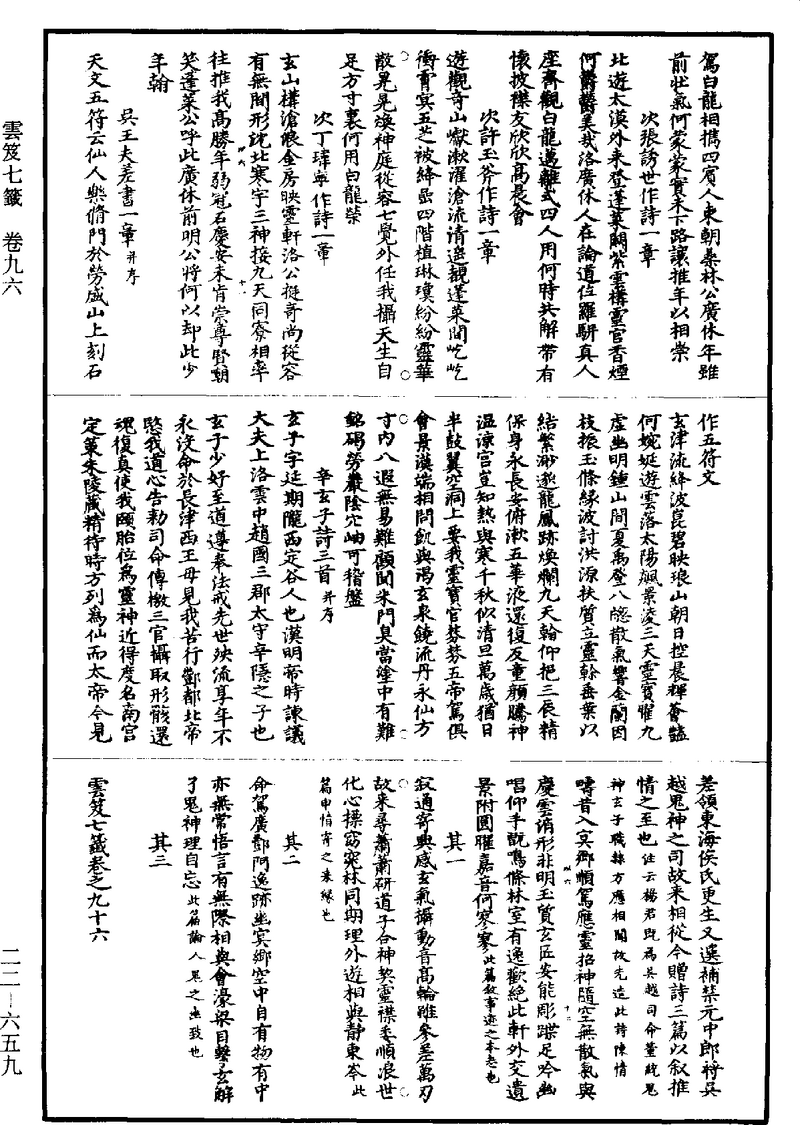 駕白龍相攜四賓人東朝桑林公廣休年雖
前壯氣何蒙蒙實未下路讓推年以相崇
次張誘世作詩一章
北遊太漠外來登蓬萊闕紫雲構靈宮香煙
何鬱鬱美哉洛廣休久在論道位羅駢真人
座齊觀白龍邁離式四人用何時共解帶有
懷披襟友欣欣高晨會
次許玉斧作詩一章
遊觀奇山嶽漱濯滄流清遙觀蓬萊間屹屹
衝霄冥五芝被絳嵒四階植琳瓊紛紛靈華
散晃晃煥神庭從容七覺外任我攝天生自
足方寸裏何用白龍榮
次丁瑋寧作詩一章
玄山構滄浪金房映靈軒洛公挺奇尚從容
有無間形沈北寒宇三神接九天同寮相率
往推我高勝年弱冠石慶安未肯崇尊賢朝
笑蓬萊公呼此廣休前明公將何以却此少
年翰
吳王夫差書一章并序
天文五符云仙人樂脩門於勞盛山上刻石
作五符文
玄津流絳波崑碧映琅山朝日控晨輝薈豔
何婉娗遊雲落太陽飆景凌三天靈寶曜九
虛幽明鍾山間夏禹登八䆫散氣響金蘭因
枝振玉條緣波討洪源扶質立靈榦垂葉以
結繁渺邈龍鳳跡煥爛九天翰仰挹三辰精
保身永長安俯漱五華液還復反童顏騰神
溫涼宮豈知熱與寒千秋似清旦萬歲猶日
半鼓翼空洞上要我靈寶官棼棼五帝駕俱
會景漢端相問飢與渴玄泉饒流丹永仙方
寸內八遐無易難顧聞朱門臭當塗中有難
銘碣勞巖陰穴岫可稽盤
辛玄子詩三首并序
玄子字延期隴西定谷人也漢明帝時諫議
大夫上洛雲中趙國三郡太守辛隱之子也
玄子少好至道遵奉法戒先世殃流享年不
永沒命於長津西王母見我苦行酆都北帝
愍我道心告勑司命傳檄三官攝取形骸還
魂復真使我頤胎位為靈神近得度名南宮
定策朱陵藏精待時方列為仙而太帝今見
差領東海侯氏更生又選補禁元中郎將吳
越鬼神之司故來相從今贈詩三篇以叙推
情之至也注云楊君既為吳越司命董統鬼
神玄子職隸方應相聞故先造此詩陳情
嚋昔入冥鄉順駕應靈招神隨空無散氣與
慶雲消形非明玉質玄匠安能彫蹀足吟幽
唱仰手翫鳴條林室有逸歡絕此軒外交遺
景附圓曜嘉音何寥寥此篇敘事迹之本志也
其一
寂通寄興感玄氣攝動音高輪雖參差萬刃
故來尋蕭蕭研道子合神契靈襟委順浪世
化心摽窈窕林同期理外遊相與靜東岑此
篇申情寄之來緣也
其二
命駕廣酆阿逸跡幽冥鄉空中自有物有中
亦無常悟言有無際相與會濠梁目擊玄解
了鬼神理自忘此篇論人鬼之幽致也
其三
雲笈七籤卷之九十六
雲笈七籤　卷九六
二二—六五九